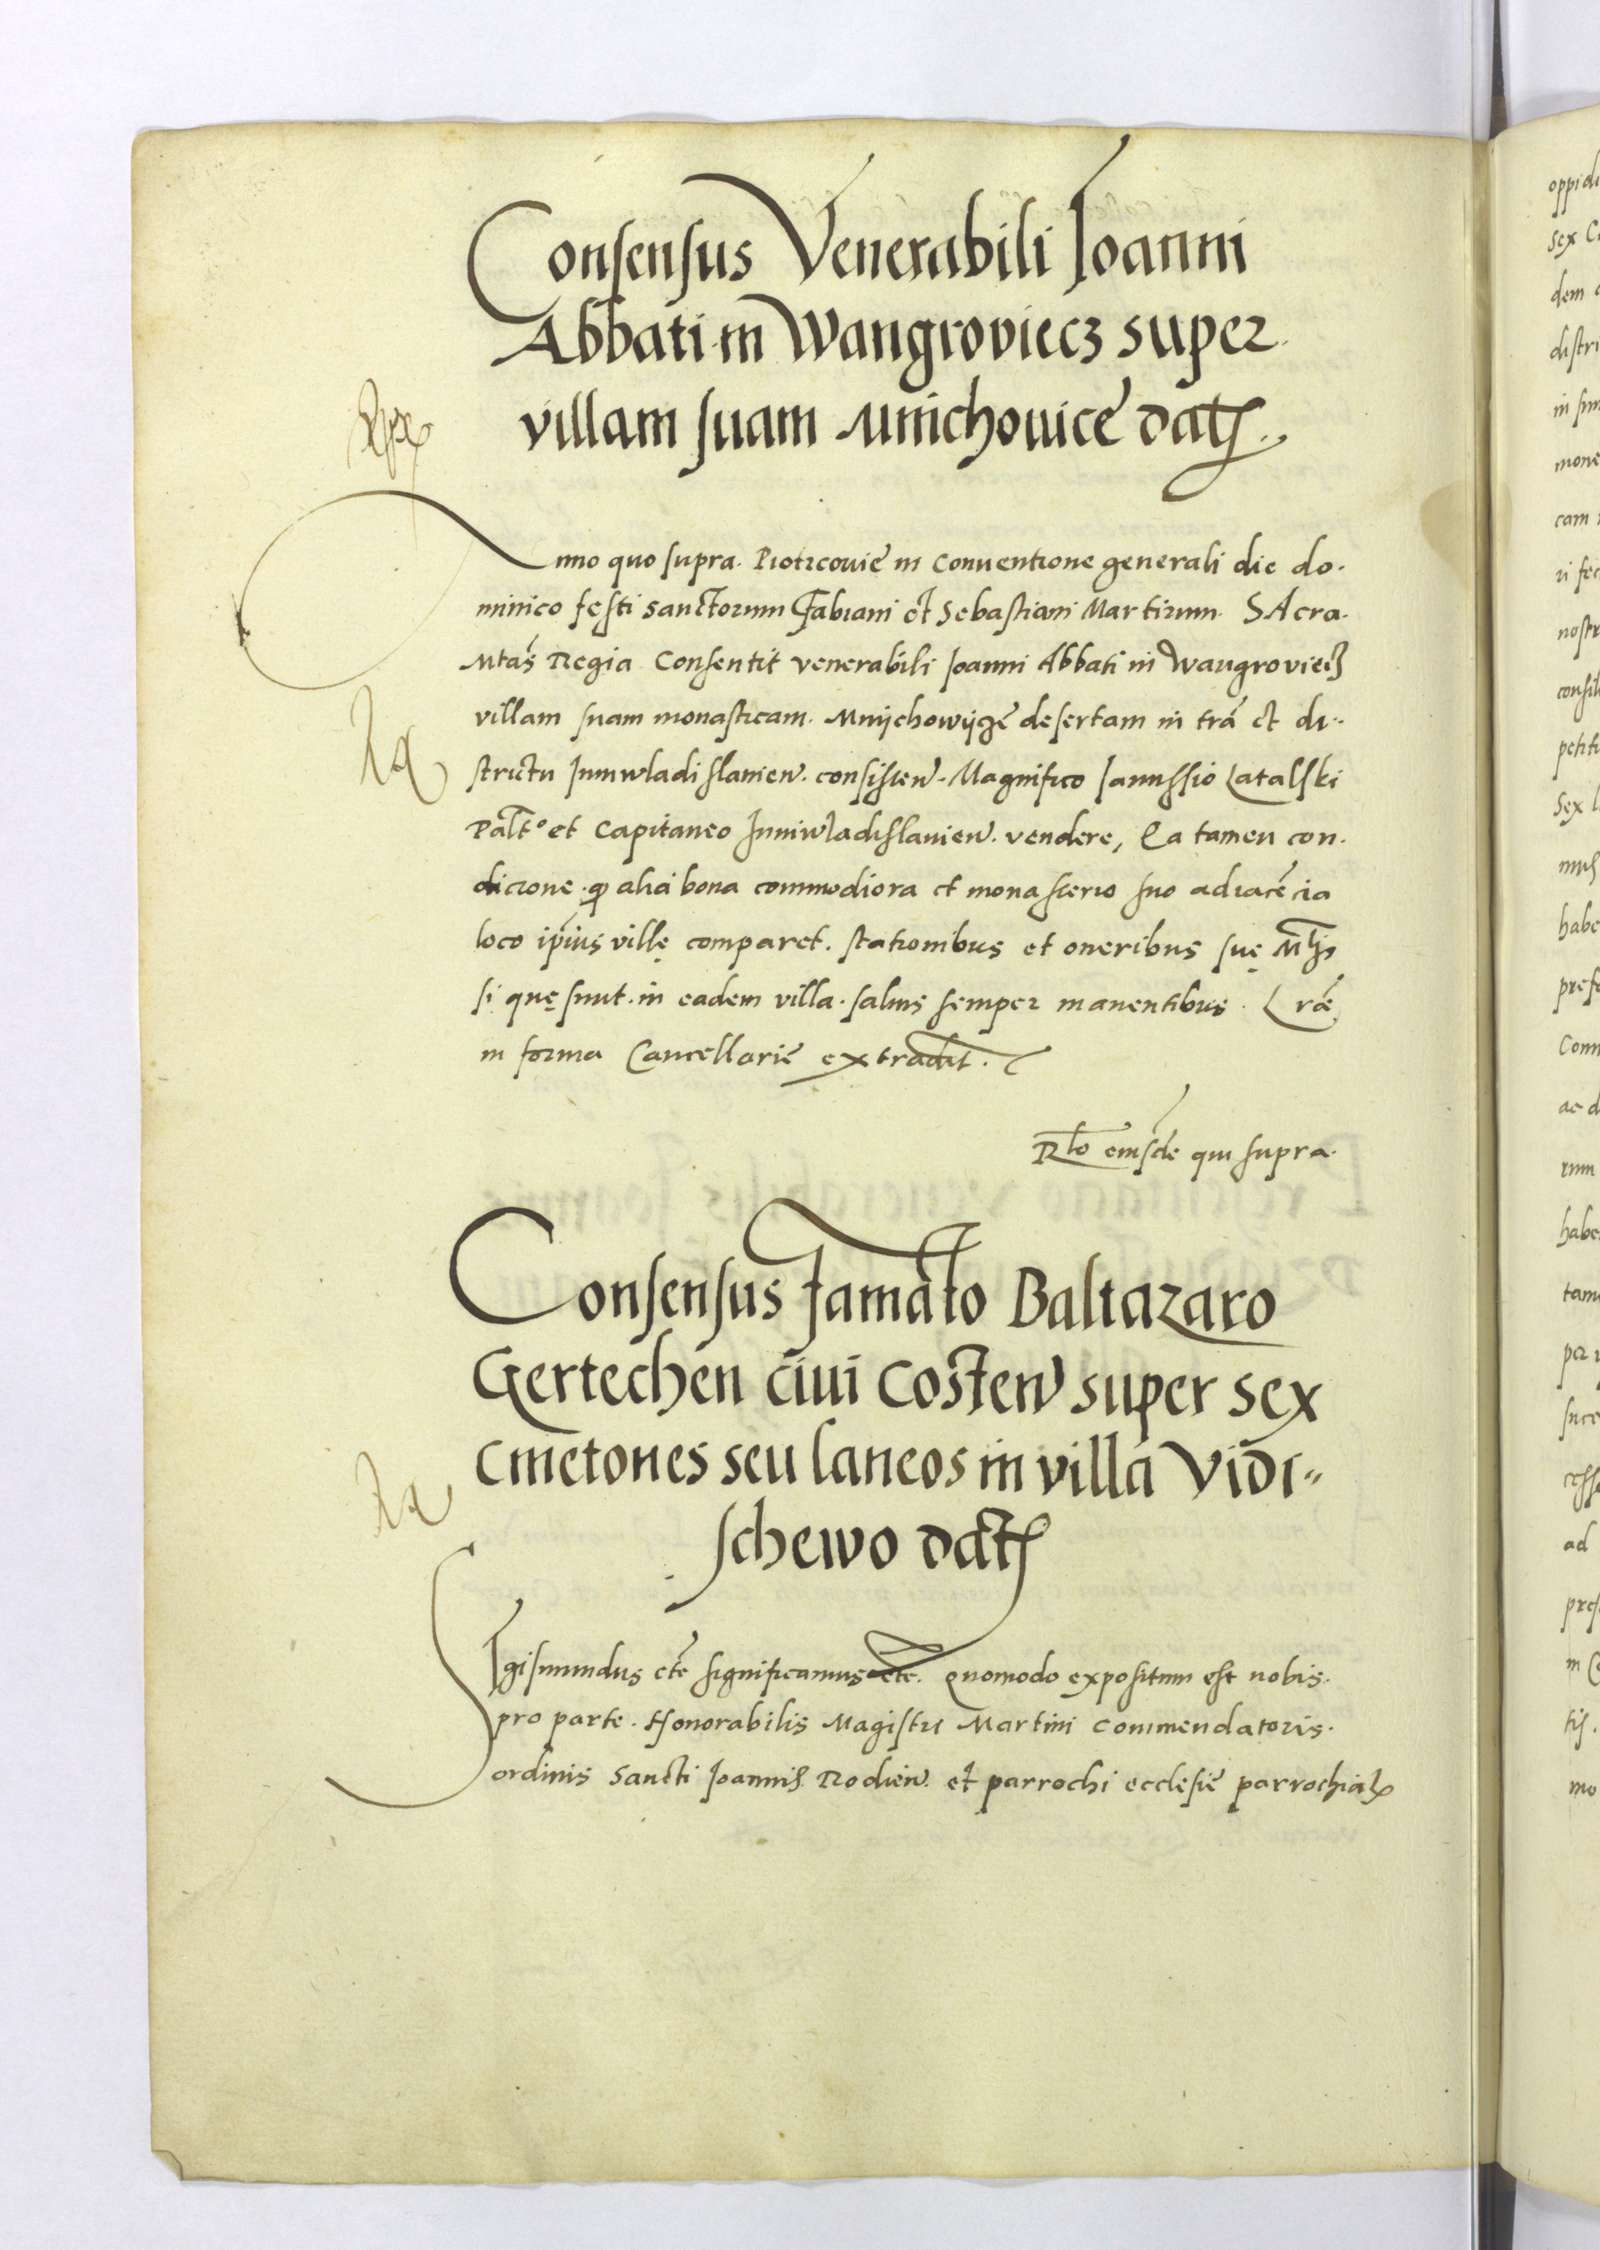 Consensus Venerabili Ioanni
Abbati in Wangroviecz super
villam suam Mnichouice dat
nno quo supra. Piotrcouie in Conuentione generali die do.
minico festi sanctorum Fabiani et Sebastiani Martirum. SAcra.
Mtas Regia Consentit venerabili Ioanni Abbati in Wangroviecz
villam suam monasticam. Mnijchowijcze desertam in tra et di..
strictu Iuniwladislauien. consisten. Magnifico Ianussio Latalski
Palto et Capitaneo Iuniwladislauien. vendere, Ea tamen con.
dicione. q alia bona commodiora et monasterio suo adiacecia
loco ipius villę comparet. stationibus et oneribus suę Mtis
si quę sunt. in eadem villa. saluis semper manentibus. Lrae
in forma Cancellarie extradit.
Rlo eiusde qui supra.
Consensus famato Baltazaro
Gertechen ciui Costen super sex
cmetones seu laneos in villa Vidi"
schewo dat
Igismundus cte significamus etc. Quomodo expositum est nobis.
pro parte. Honorabilis Magistri Martini Commendatoris.
ordinis Sancti Ioannis Rodien. et parrochi ecclesie parrochial
oppid
sex
dem
distri
in
mone
cam
ri fec
nostr
consil
petit
Sex
habe
pref
Conn
ac d
rum
habe
tam
per
ad
pres
in
mo